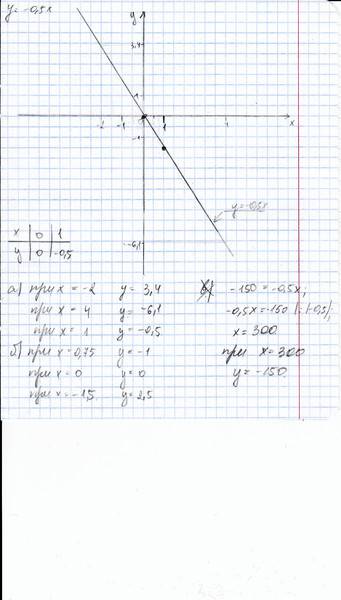 y = -0,5x
y
3,4
1
-2 -1 1 4 x
-1
y=-0,5x
-6,1
x 0 1
y 0 -0,5
а) при x = -2 y = 3,4
при x = 4 y = -6,1
при x = 1 y = -0,5
б) при x = 0,75 y = -1
при x = 0 y = 0
при x = -1,5 y = 2,5
-150 = -0,5x;
-0,5x = -150 |:(-0,5);
x = 300
при x = 300
y = -150.